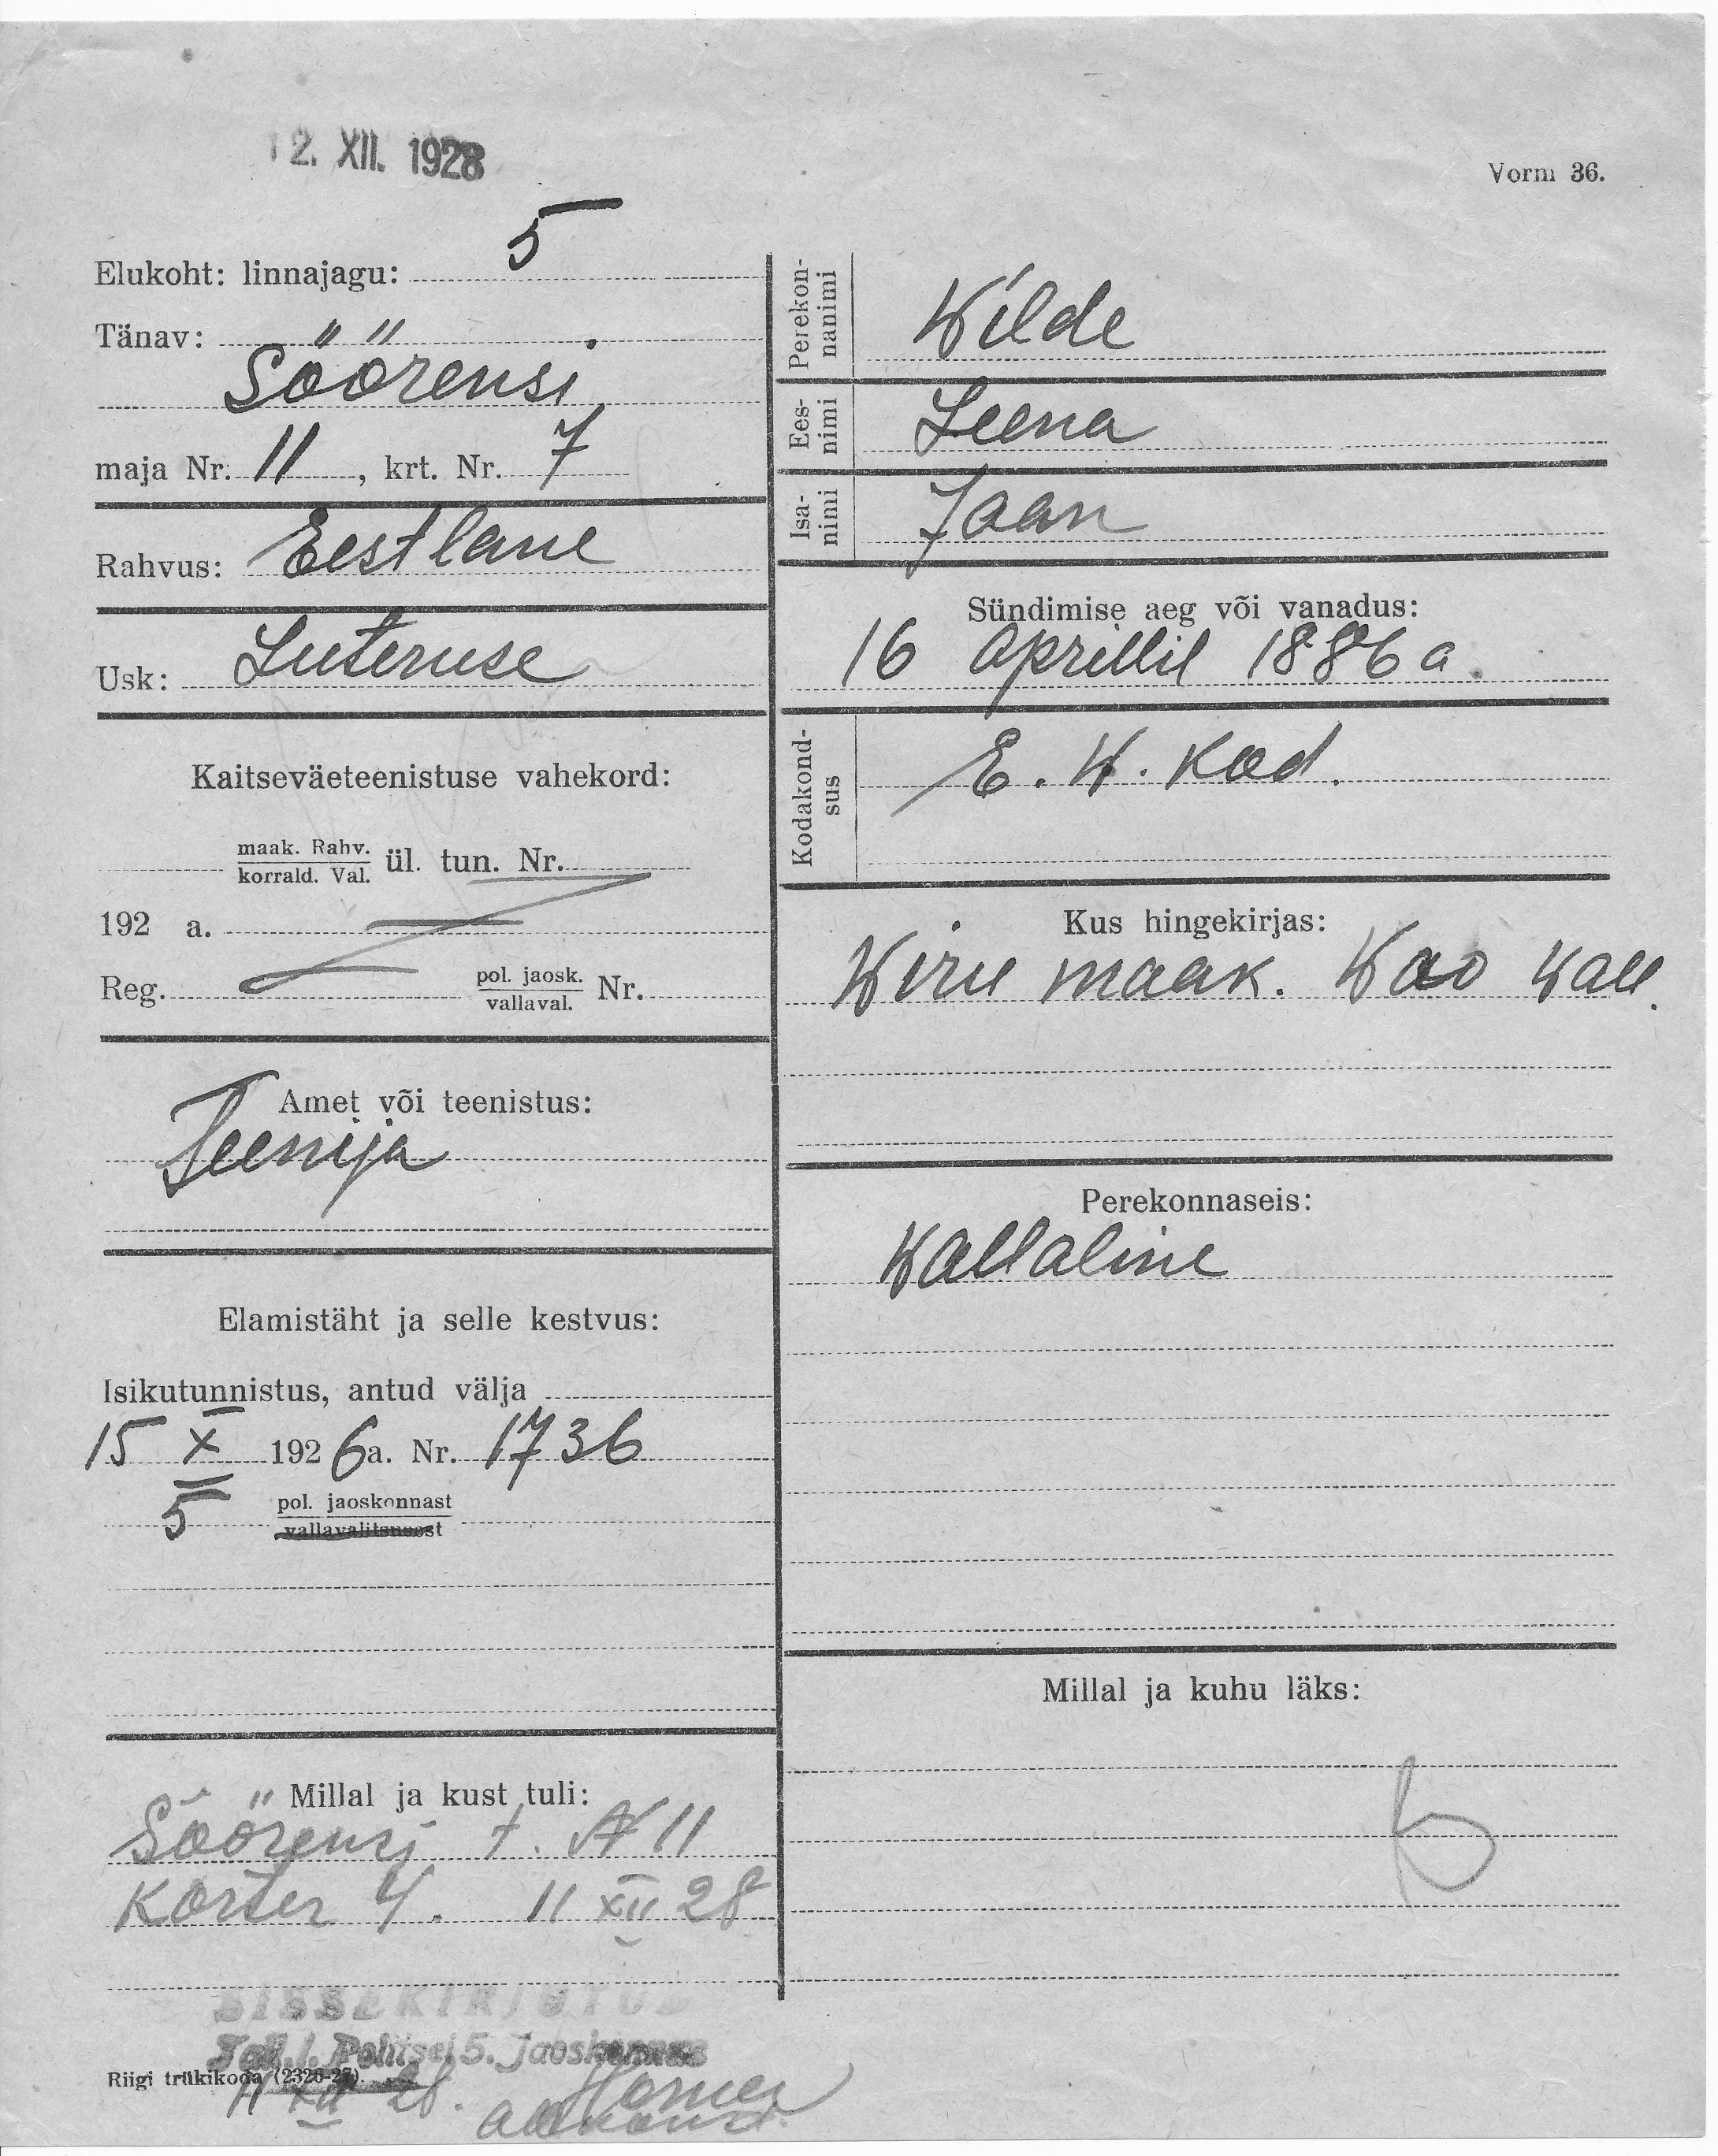 12. XII. 1928
Vorm 36.
Elukoht: linnajagu: 5
Tänav:
Söörensi
maja Nr. 11, krt. Nr. 7
Rahvus: Eestlane
Usk: Luteruse
Kaitseväeteenistuse vahekord:
maak. Rahv.
korrald. Val. ül. tun. Nr.
192 a.
Reg. pol. jaosk.
vallaval. Nr.
Amet või teenistus:
Teenija
Elamistäht ja selle kestvus:
Isikutunnistus, antud välja
15 X 1926a. Nr. 1736
5 pol. jaoskonnast
vallavalitsusest
Millal ja kust tuli:
Söörensi t. № 11
Korter 4. 11 XII 28
Perekon-
nanimi
Wilde
Ees-
nimi
Leena
Isa-
nimi
Jaan
Sündimise aeg või vanadus:
16 Aprillil 1886 a.
Kodakond-
sus
E. W. Kod.
Kus hingekirjas:
Wiru maak. Wao wall.
Perekonnaseis:
Wallaline
Millal ja kuhu läks:
SISSEKIRJUTUD
Tall. l. Politsei 5. Jaoskonnas
Riigi trükikoda (2326-27).
11 XII 28.